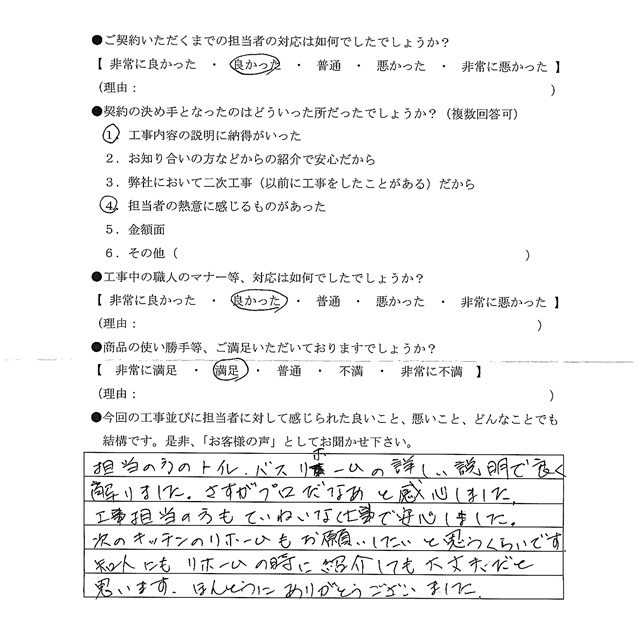 ●ご契約いただくまでの担当者の対応は如何でしたでしょうか？
【 非常に良かった ・ 良かった ・ 普通 ・ 悪かった ・ 非常に悪かった 】
（理由： ）
●契約の決め手となったのはどういった所だったでしょうか？（複数回答可）
1．工事内容の説明に納得がいった
2．お知り合いの方などからの紹介で安心だから
3．弊社において二次工事（以前に工事をしたことがある）だから
4．担当者の熱意に感じるものがあった
5．金額面
6．その他（ ）
●工事中の職人のマナー等、対応は如何でしたでしょうか？
【 非常に良かった ・ 良かった ・ 普通 ・ 悪かった ・ 非常に悪かった 】
（理由： ）
●商品の使い勝手等、ご満足いただいておりますでしょうか？
【 非常に満足 ・ 満足 ・ 普通 ・ 不満 ・ 非常に不満 】
（理由： ）
●今回の工事並びに担当者に対して感じられた良いこと、悪いこと、どんなことでも
結構です。是非、「お客様の声」としてお聞かせ下さい。
担当の方のトイレ.バスリホームの詳しい説明で良く
解りました。さすがプロだなあと感心しました。
工事担当の方もていねいな仕事で安心しました。
次のキッチンのリホームもお願いしたいと思うくらいです。
知人にもリホームの時に紹介しても大丈夫だと
思います。ほんとうにありがとうございました。